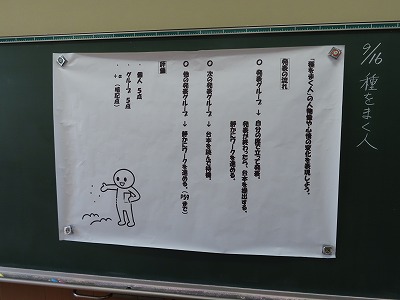 9/16 種をまく人
「種をまく人」の人物像や心情の変化を表現しよう。
発表の流れ
○ 発表グループ → 自分の席で立って発表。
発表が終わったら、台本を提出する。
静かにワークを進める。
○ 次の発表グループ → 台本を読んで待機。
○ 他の発表グループ → 静かにワークを進める。(P59まで)
評価
・個人 5点
・グループ 5点
・+α(暗記点)